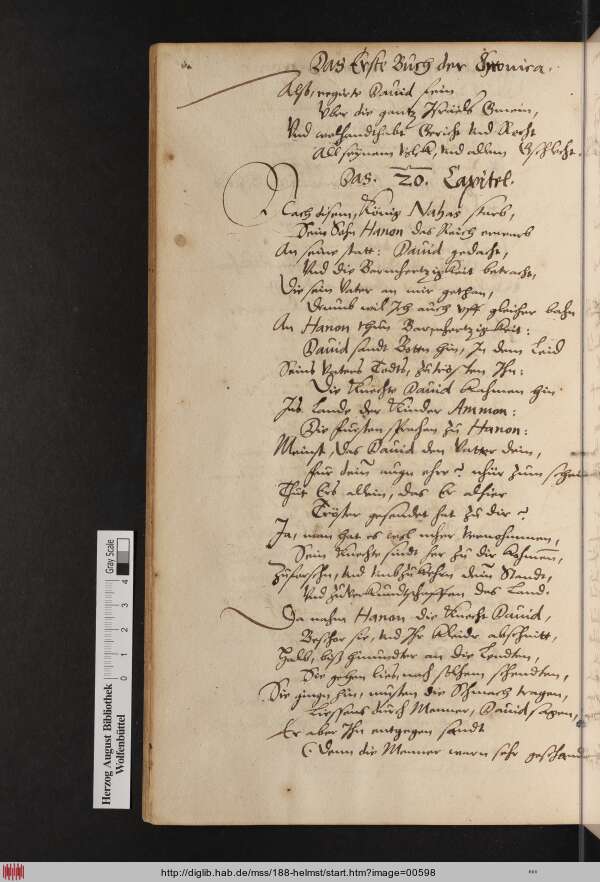 Das Erste Buch der Cronica.
Also, regirte Dauid sein
Vber die gantz Israels Gmein,
Vnd wolhandthabt Gericht vnd Recht
All seynem Volck, vnd allem Gschlecht.
Das. 20. Capitel.
Nach disem, König Nahas starb,
Sein Sohn Hanon das Reich erwarb
An seine statt: Dauid gedacht,
Vnd die Barmhertzigkeit betracht,
Die sein Vater an mir gethan,
Drumb wil Ich auch vff gleicher bahn
An Hanon thun Barmhertzigkeit:
Dauid sandt Botten hin, In dem Leid
Seins Vaters Todts, zu trösten Ihn:
Die Knechte Dauid kahmen hin
Ins Lande der Kinder Ammon:
Die fursten sprachen zu Hanon:
Meinst, das Dauid den Vatter dein,
für dein augn ehre? nhur zum schein
Thut Ers allein, das Er alhier
Tröster gesendet hat zu dir?
Ja, man hat es wol eher vernohmmen,
Sein Knechte sindt her zu dir kohmen,
Zuforschn, vnd vmbzukehrn dein Standt,
Vnd zuverkundtschaffen das Land.
Da nahm Hanon die Knecht Dauid,
Beschor sie, vnd Ihr Kleider abschnitt,
Halb, biß hinundter an die Lendten,
Sie gehen lies, nach solchem schendten,
Sie gingn hin, musten die Schmach tragen,
Liessens durch Menner, Dauid sagen,
Er aber Ihn entgegen sandt
(Denn die Menner warn sehr geschandt
Herzog August Bibliothek
Wolfenbüttel
Gray Scale
0 1 2 3 4
http://diglib.hab.de/mss/188-helmst/start.htm?image=00598